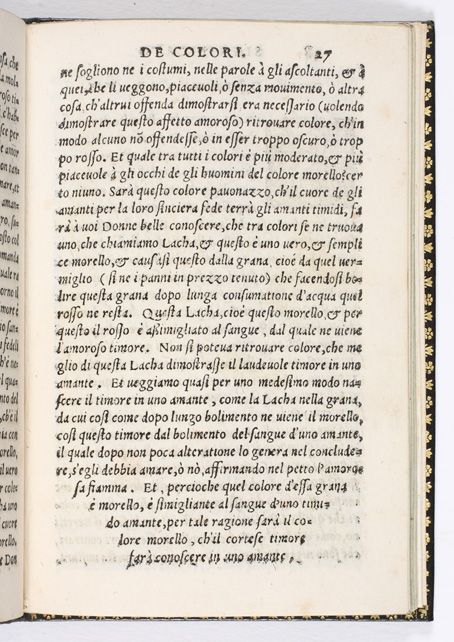 DE COLORI. 27
ne sogliono ne i costumi, nelle parole à gli ascoltanti, & à
quei, che li ueggono, piaceuoli, ò senza mouimento, ò altra
cosa, ch'altrui offenda dimostrarsi era necessario (uolendo
dimostrare questo affetto amoroso) ritrouare colore, ch'in
modo alcuno nõ offendesse, ò in esser troppo oscuro, ò trop
po rosso. Et quale tra tutti i colori è più moderato, & più
piaceuole à gli occhi de gli huomini del colore morello? cer
to niuno. Sarà questo colore pauonazzo, ch'il cuore de gli
amanti per la loro sinciera fede terrà gli amanti timidi, fa
rà à uoi Donne belle conoscere, che tra colori se ne truoua
uno, che chiamiamo Lacha, & questo è uno uero, & sempli
ce morello, & causasi questo dalla grana, cioè da quel uer
miglio (si ne i panni in prezzo tenuto) che facendosi bo=
lire questa grana dopo lunga consumatione d'acqua quel
rosso ne resta. Questa Lacha, cioè questo morello, & per
questo il rosso è assimigliato al sangue, dal quale ne uiene
l'amoroso timore. Non si poteua ritrouare colore, che me
glio di questa Lacha dimostrasse il laudeuole timore in uno
amante. Et ueggiamo quasi per uno medesimo modo na=
scere il timore in uno amante, come la Lacha nella grana,
da cui così come dopo lungo bolimento ne uiene il morello,
così questo timore dal bolimento del sangue d'uno amante,
il quale dopo non poca alteratione lo genera nel conclude=
re, s'egli debbia amare, ò nò, affirmando nel petto l'amoro=
sa fiamma. Et, percioche quel colore d'essa grana
è morello, è simigliante al sangue d'uno timi=
do amante, per tale ragione sarà il co=
lore morello, ch'il cortese timore
farà conoscere in uno amante.